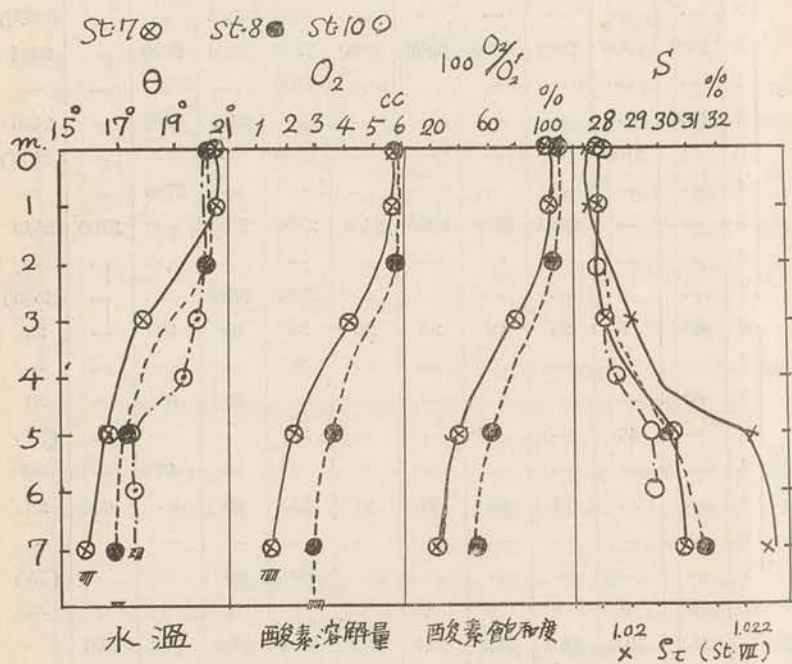 St.7 ⊗ St.8 ● St.10 ⊙
θ O₂ 100 O₂/O₂′ S
15° 17° 19° 21° 1 2 3 4 5 6 cc 20 60 100 % 28 29 30 31 32 %
m.
0
1
2
3
4
5
6
7
水溫 酸素溶解量 酸素飽和度
1.02 1.022
× ς𝜏 (St.Ⅶ)